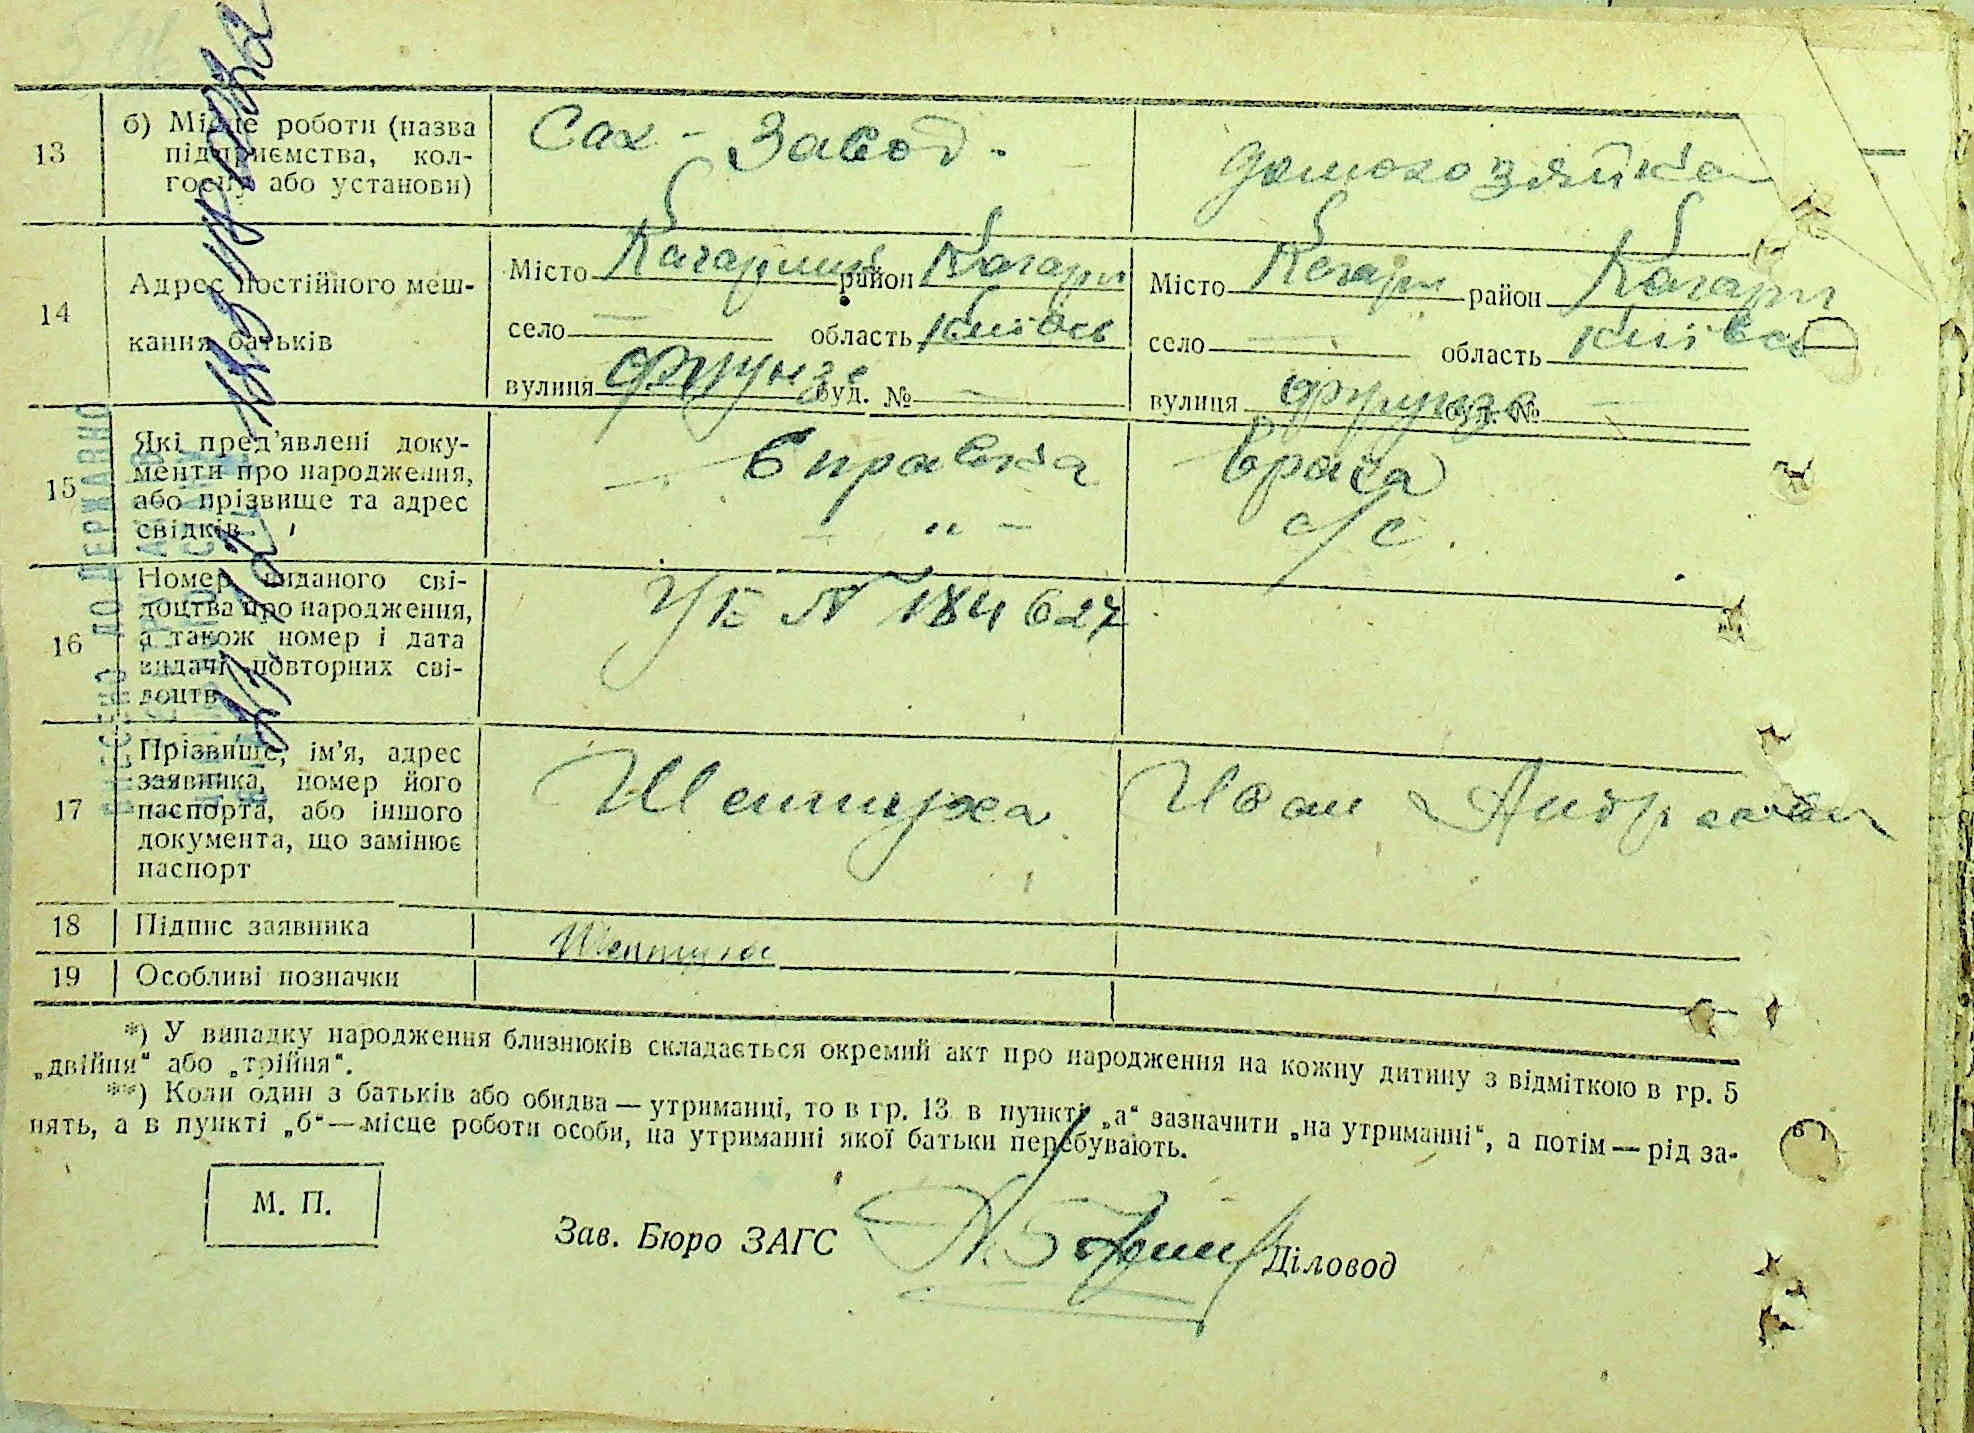 13 б) Місце роботи (назва підприємства, колгоспу або установи) Сах - Завод. домохозяйка
14 Адрес постійного мешкання батьків
Місто Кагарлик район Кагарл Місто Кагарл район Кагарл
село — область Київсь село — область Київсь
вулиця Фрунзе буд. № — вулиця Фрунзе буд. № —
15 Які пред'явлені документи про народження, або прізвище та адрес свідків
Справка врача
— „ — с/с.
16 Номер виданого свідоцтва про народження, а також номер і дата видачі повторних свідоцтв
УЕ № 184627
17 Прізвище, ім'я, адрес заявника, номер його паспорта, або іншого документа, що замінює паспорт
Шептуха Иван Андреевич
18 Підпис заявника Шептуха
19 Особливі позначки
*) У випадку народження близнюків складається окремий акт про народження на кожну дитину з відміткою в гр. 5
„двійня“ або „трійня“.
**) Коли один з батьків або обидва — утриманці, то в гр. 13 в пункті „а“ зазначити „на утриманні“, а потім — рід за-
нять, а в пункті „б“ — місце роботи особи, на утриманні якої батьки перебувають.
М. П.
Зав. Бюро ЗАГС Діловод